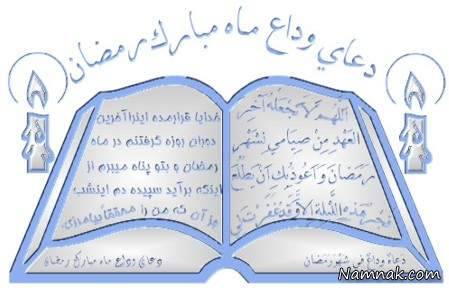 دعاي وداع ماه مبارك رمضان
اَللّهُمَّ لاتَجعَلهُ آخِرَ
العَهدِ مِن صِيامي لِشَهرِ
رَمَضانَ وَ اَعوذُ بِكَ اَن يَطلُعَ
فَجرُ هذِهِ اللَّيلَةِ اِلّا وَقَد غَفَرتَ لي
دعاء وداع في شهر رمضان
خدایا قرارمده اینرا آخرین
دوران روزه گرفتنم در ماه
رمضان و بتو پناه میبرم از
اینکه برآید سپیده دم اینشب
جز آن که من را محققاً بیامرزی
دعاي وداع ماه مبارك رمضان
Namnak.com